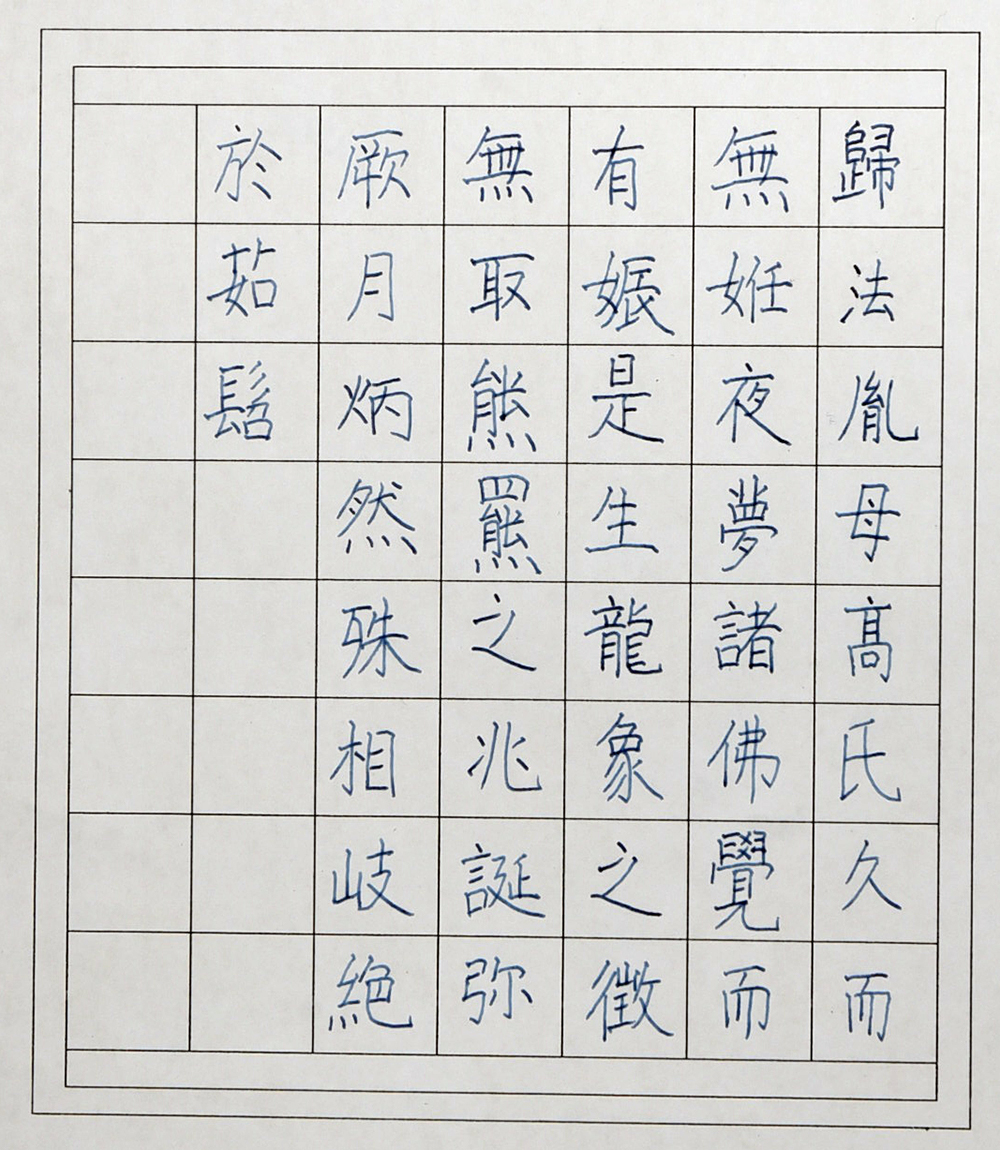 歸法胤母高氏久而
無妊夜夢諸佛覺而
有娠是生龍象之徵
無取熊羆之兆誕弥
厥月炳然殊相岐絕
於茹髫